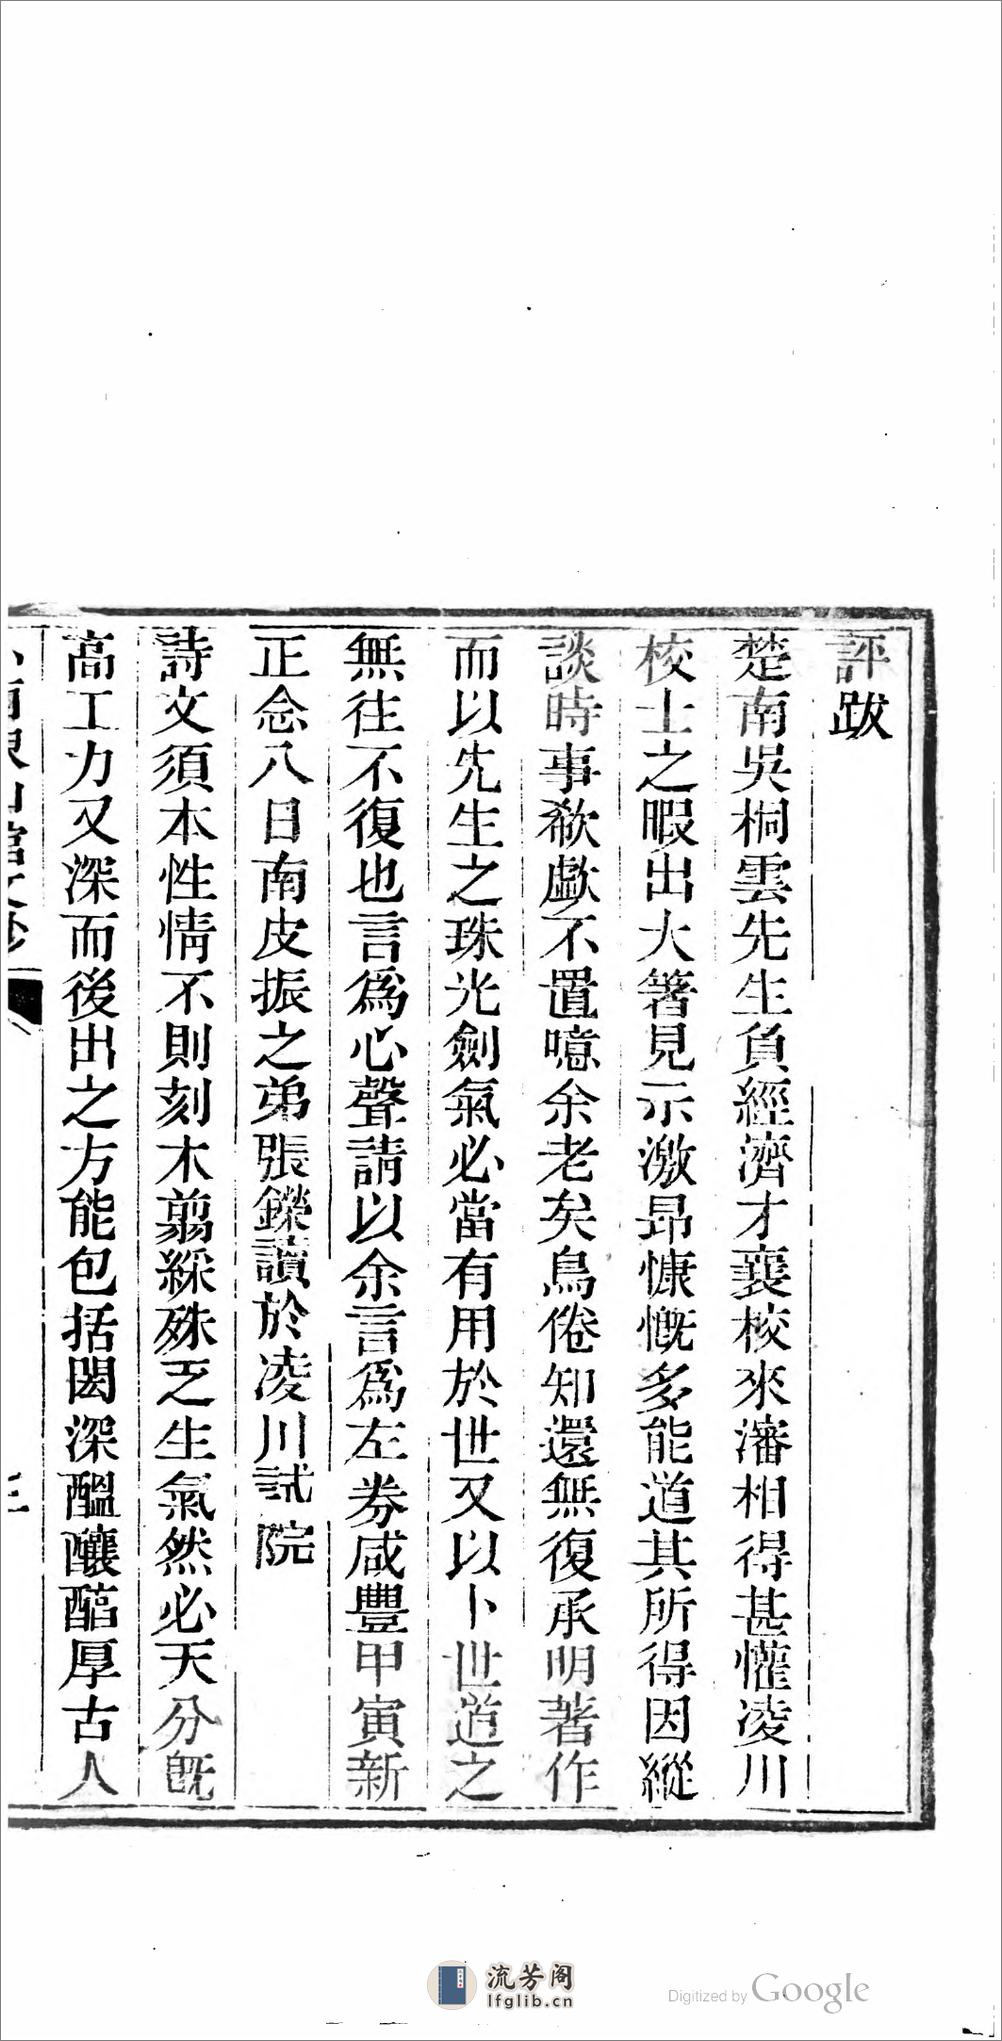 評跋
楚南吳桐雲先生負經濟才襄校來瀋相得甚懽凌川
校士之暇出大箸見示激昂慷慨多能道其所得因縱
談時事欷歔不置噫余老矣鳥倦知還無復承明著作
而以先生之珠光劍氣必當有用於世又以卜世道之
無往不復也言爲心聲請以余言爲左券咸豐甲寅新
正念八日南皮振之弟張鑅讀於凌川試院
詩文須本性情不則刻木翦綵殊乏生氣然必天分旣
高工力又深而後出之方能包括閎深醞釀醲厚古人
流芳阁
lfglib.cn
Digitized by Google